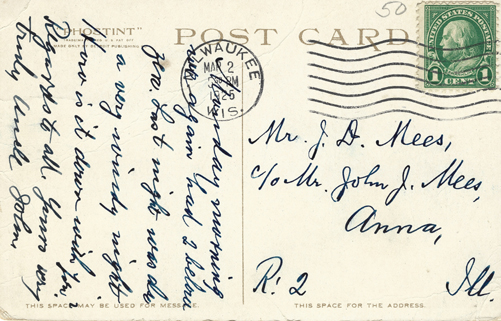 "PHOSTINT"
POST CARD
MILWAUKEE
MAR 2
1925
WIS.
UNITED STATES POSTAGE
1 1
50
Monday morning
again had 2 below
zero. Last night was
a very windy night
How is it down with you?
Regards to all. Yours very
truly Uncle John
Mr. J. D. Mees,
c/o Mr. John J. Mees,
Anna,
R. 2 Ill.
THIS SPACE MAY BE USED FOR MESSAGE.
THIS SPACE FOR THE ADDRESS.